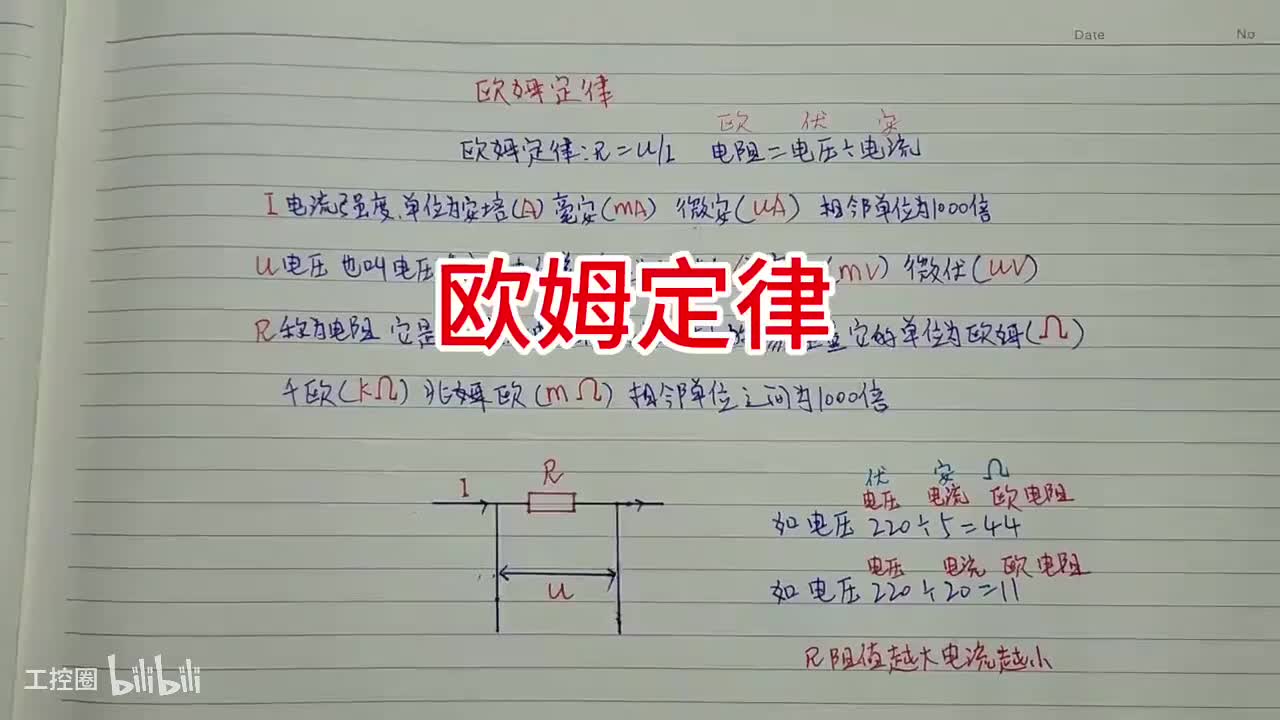 Date No
欧姆定律
欧 伏 安
欧姆定律:R=U/I 电阻=电压÷电流
I 电流强度.单位为安培(A) 毫安(mA) 微安(uA) 相邻单位为1000倍
U 电压 也叫电压 (mV) 微伏(uV)
欧姆定律
R 称为电阻 它是 的单位为欧姆(Ω)
千欧(KΩ) 兆姆欧(mΩ) 相邻单位之间为1000倍
R
I
U
伏 安 Ω
电压 电流 欧电阻
如电压 220÷5=44
电压 电流 欧电阻
如电压 220÷20=11
R阻值越大电流越小
工控圈 bilibili